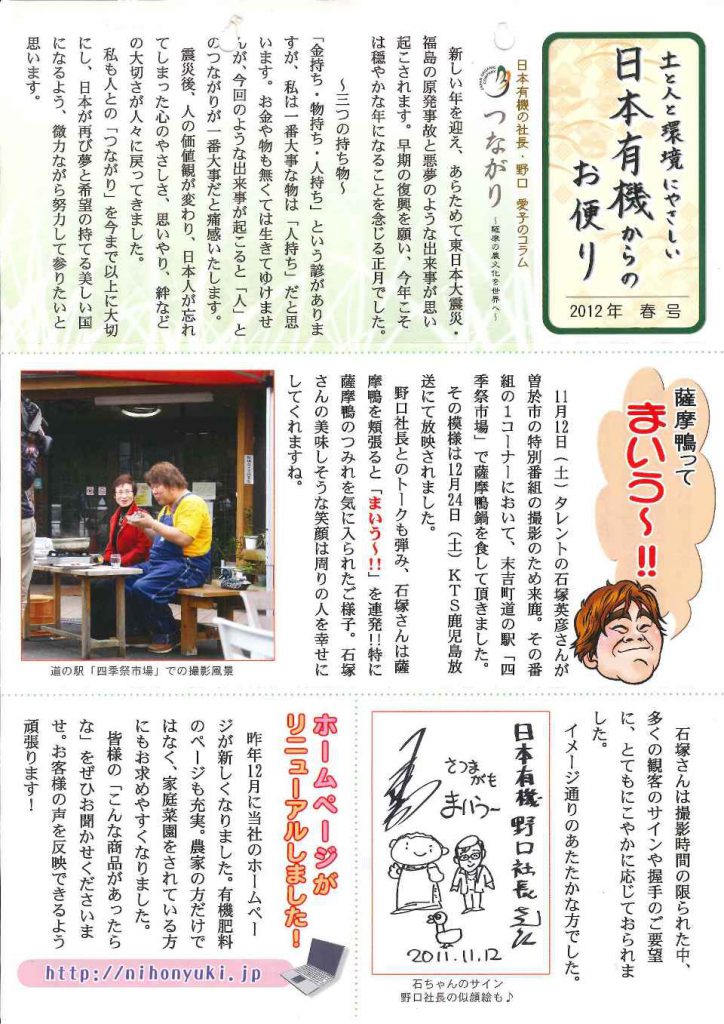 土と人と環境にやさしい
日本有機からの
お便り
2012年 春号
日本有機の社長・野口 愛子のコラム
つながり
～薩摩の農文化を世界へ～
新しい年を迎え、あらためて東日本大震災・
福島の原発事故と悪夢のような出来事が思い
起こされます。早期の復興を願い、今年こそ
は穏やかな年になることを念じる正月でした。
～三つの持ち物～
「金持ち・物持ち・人持ち」という諺がありま
すが、私は一番大事な物は「人持ち」だと思
います。お金や物も無くては生きてゆけませ
んが、今回のような出来事が起こると「人」と
のつながりが一番大事だと痛感いたします。
震災後、人の価値観が変わり、日本人が忘れ
てしまった心のやさしさ、思いやり、絆など
の大切さが人々に戻ってきました。
私も人との「つながり」を今まで以上に大切
にし、日本が再び夢と希望の持てる美しい国
になるよう、微力ながら努力して参りたいと
思います。
薩摩鴨って
まいう～!!
11月12日（土）タレントの石塚英彦さんが
曽於市の特別番組の撮影のため来鹿。その番
組の1コーナーにおいて、末吉町道の駅「四
季祭市場」で薩摩鴨鍋を食して頂きました。
その模様は12月24日（土）KTS鹿児島放
送にて放映されました。
野口社長とのトークも弾み、石塚さんは薩
摩鴨を頬張ると「まいう～!!」を連発!!特に
薩摩鴨のつみれを気に入られたご様子。石塚
さんの美味しそうな笑顔は周りの人を幸せに
してくれますね。
道の駅「四季祭市場」での撮影風景
石塚さんは撮影時間の限られた中、
多くの観客のサインや握手のご要望
に、とてもにこやかに応じておられま
した。
イメージ通りのあたたかな方でした。
日本有機 野口社長
さつま
がも
まいう～
2011.11.12
石ちゃんのサイン
野口社長の似顔絵も♪
ホームページが
リニューアルしました！
昨年12月に当社のホームペー
ジが新しくなりました。有機肥料
のページも充実。農家の方だけで
はなく、家庭菜園をされている方
にもお求めやすくなりました。
皆様の「こんな商品があったら
な」をぜひお聞かせくださいま
せ。お客様の声を反映できるよう
頑張ります！
http://nihonyuki.jp